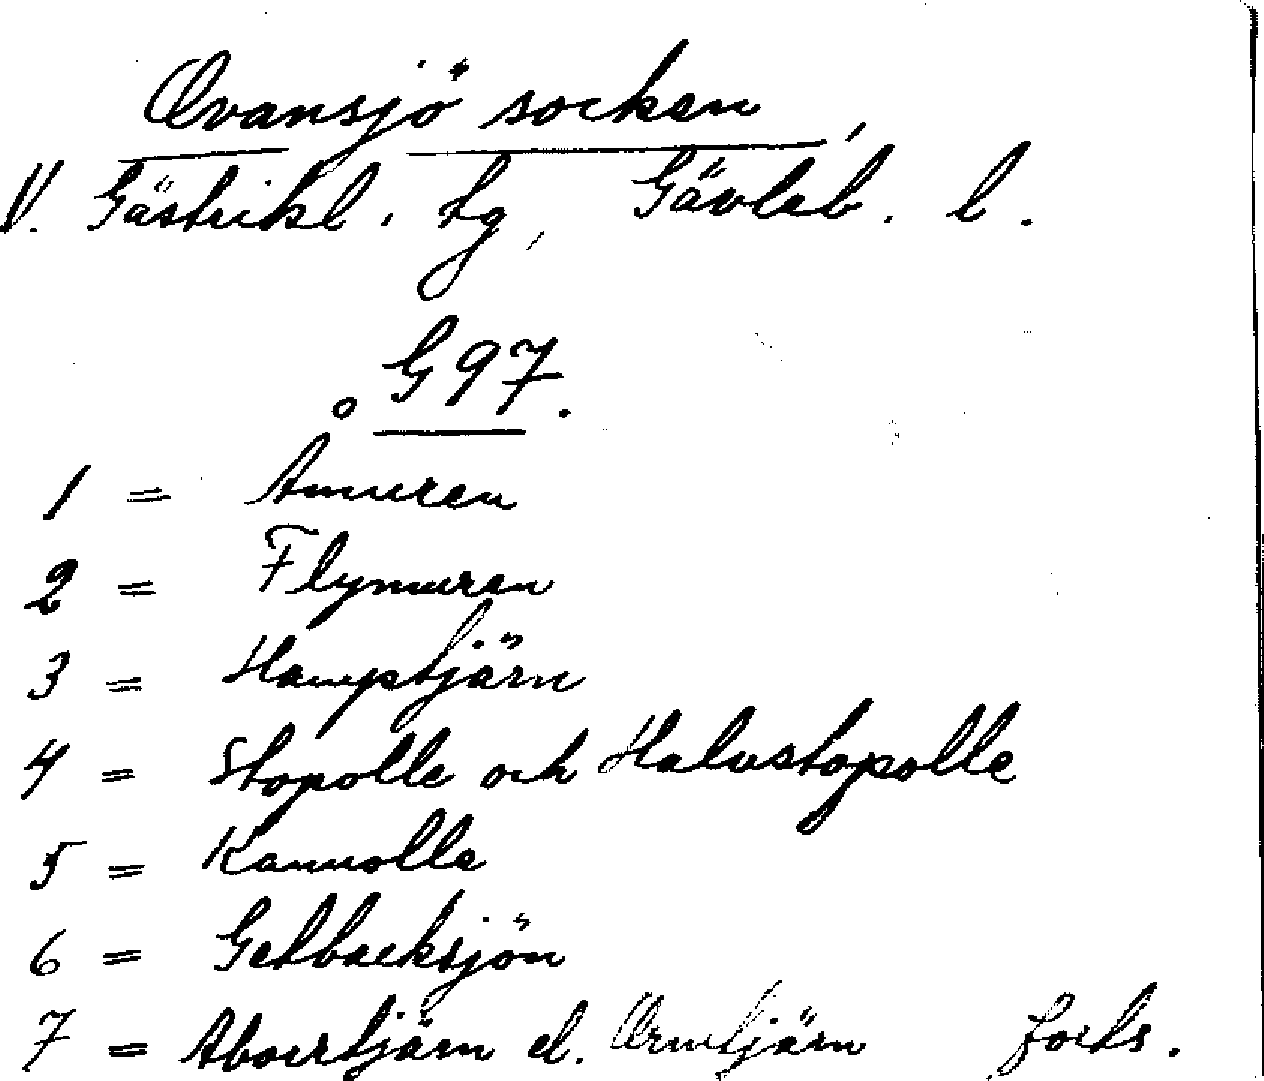 Ovansjö socken,
V. Gästrikl. tg, Gävleb. l.
G 97.
1 = Åmuren
2 = Flymuren
3 = Hamptjärn
4 = Stopolle och Halvstopolle
5 = Kannolle
6 = Getbacksjön
7 = Aborrtjärn el. Ormtjärn forts.